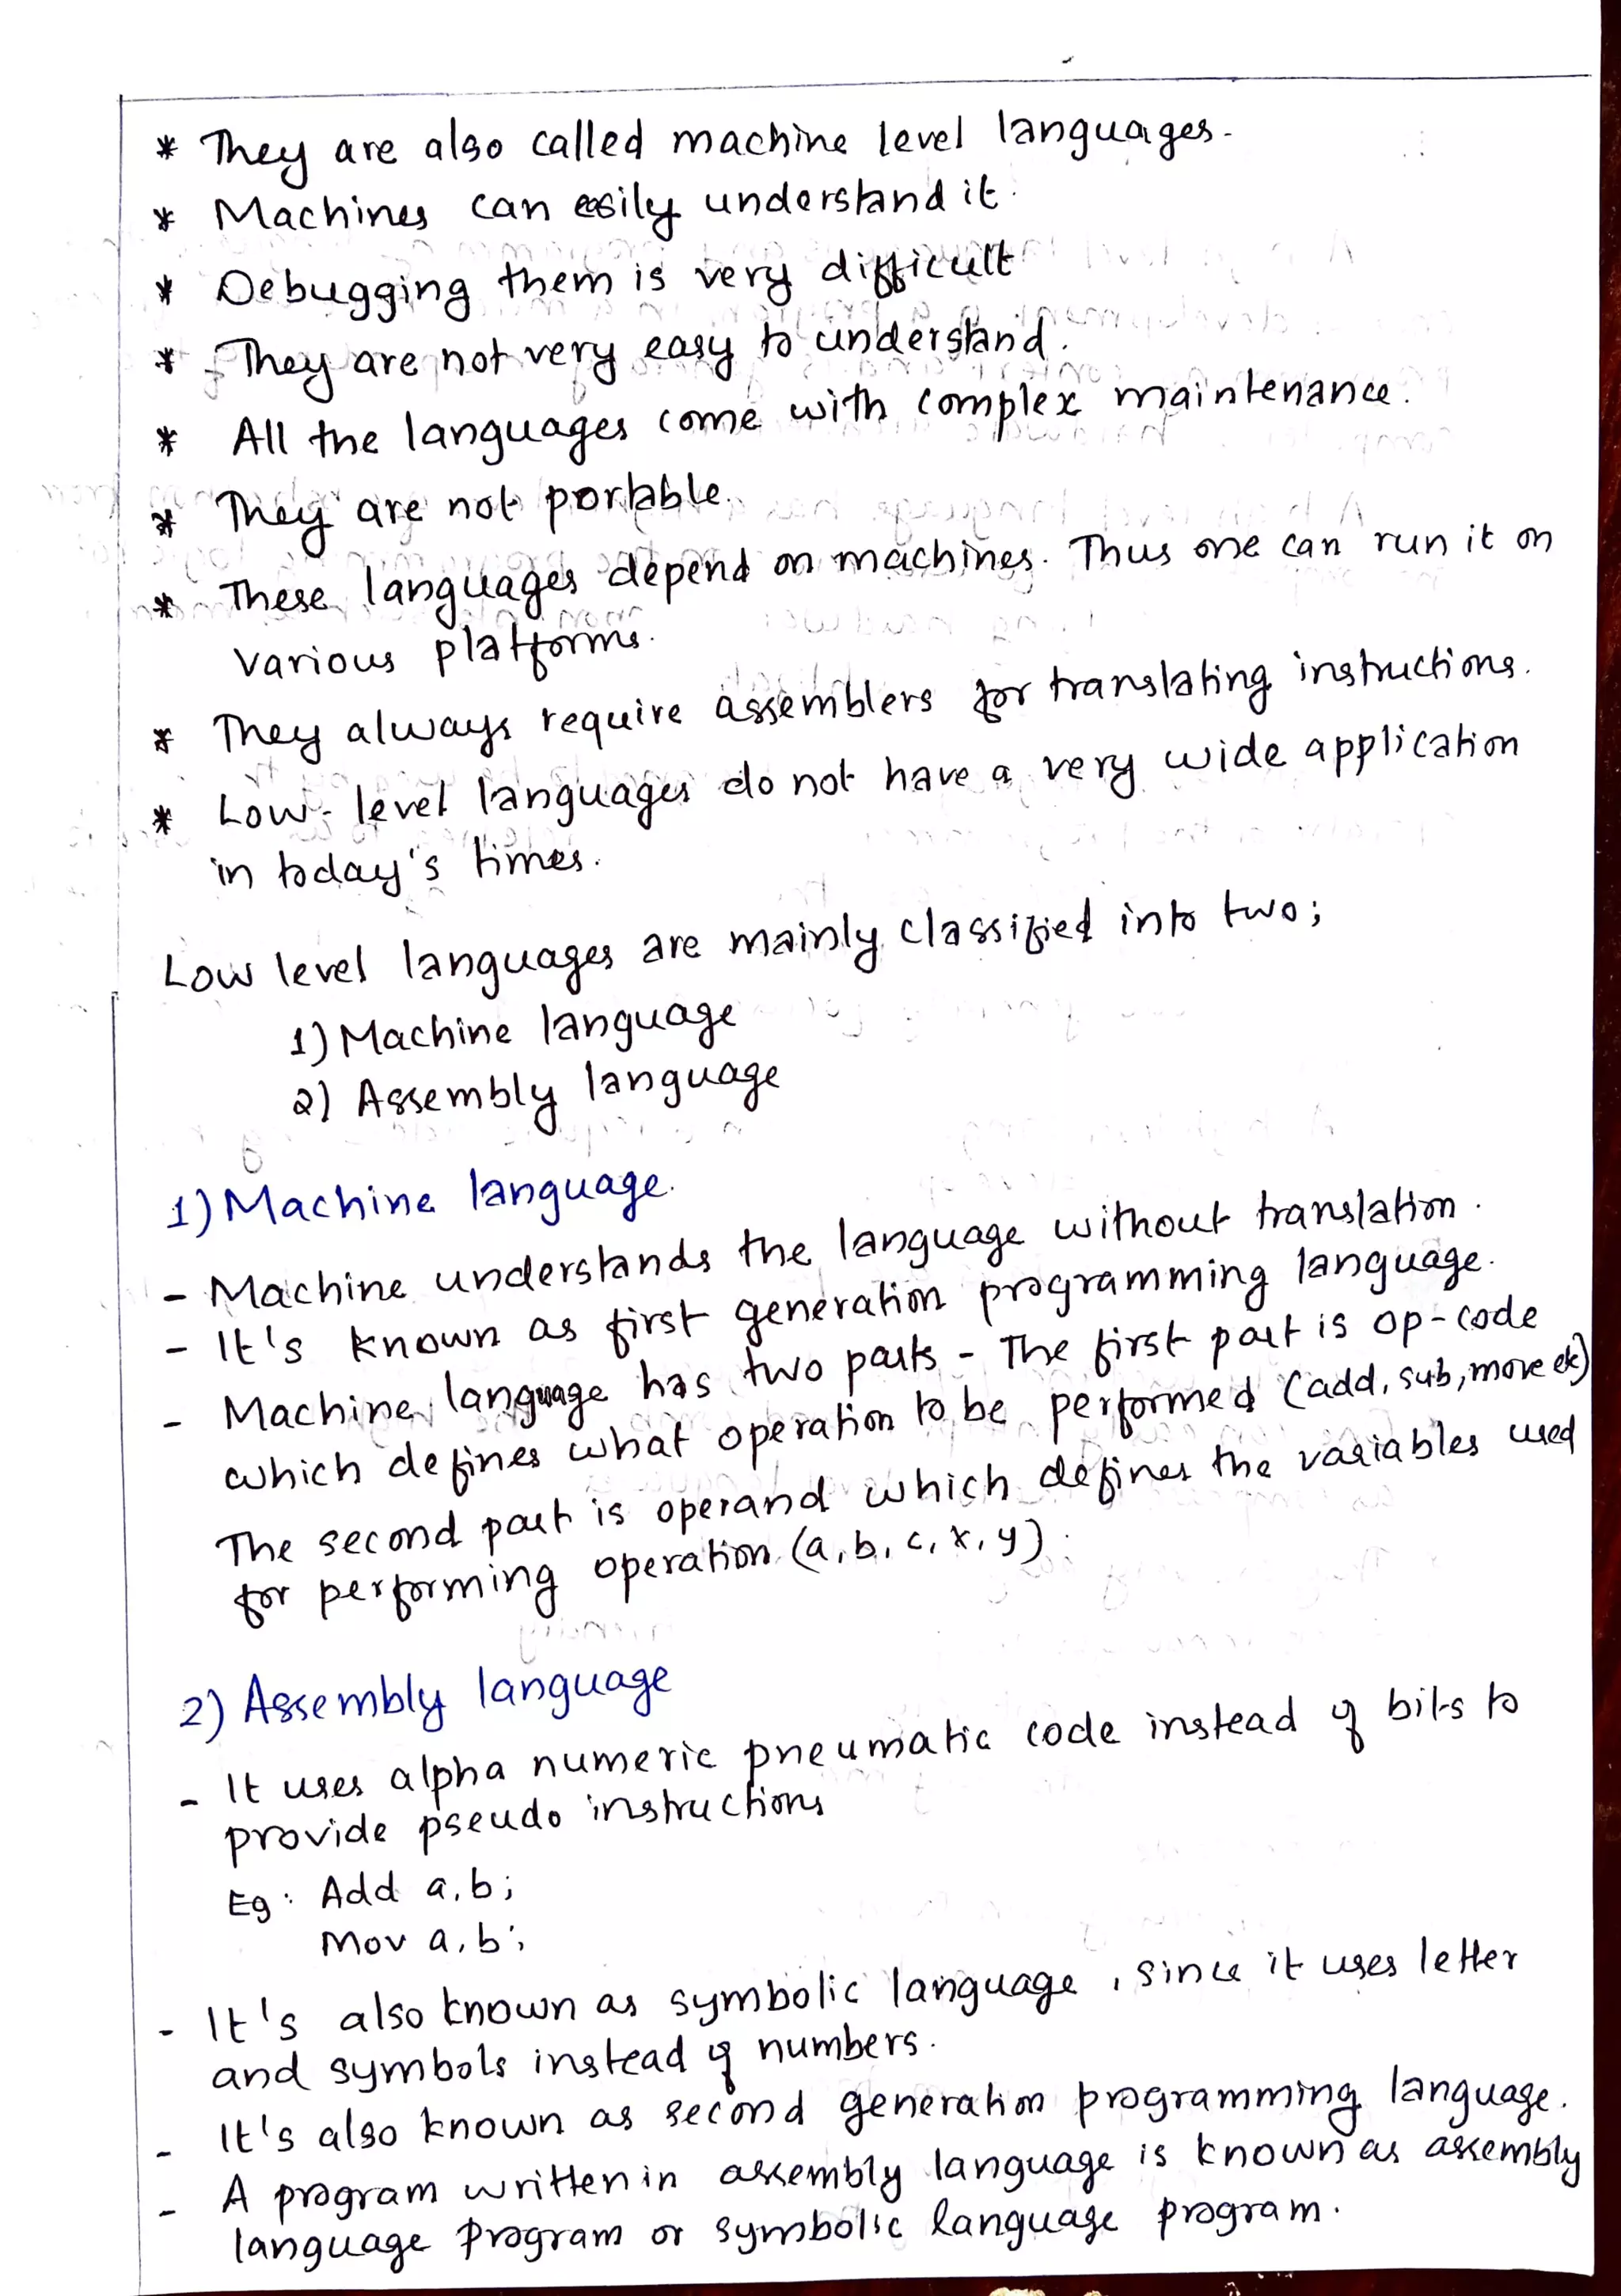 * They are also called machine level languages.
* Machines can easily understand it.
* Debugging them is very difficult
* They are not very easy to understand.
* All the languages come with complex maintenance.
* They are not portable.
* These languages depend on machines. Thus one can run it on
various platforms.
* They always require assemblers for translating instructions.
* Low-level languages do not have a very wide application
in today's times.
Low level languages are mainly classified into two;
1) Machine language
2) Assembly language
1) Machine language.
- Machine understands the language without translation.
- It's known as first generation programming language.
- Machine language has two parts - The first part is op-code
which defines what operation to be performed (add, sub, move etc)
The second part is operand which defines the variables used
for performing operation (a, b, c, x, y).
2) Assembly language
- It uses alpha numeric pneumatic code instead of bits to
provide pseudo instructions
Eg: Add a, b;
Mov a, b;
- It's also known as symbolic language, since it uses letter
and symbols instead of numbers.
- It's also known as second generation programming language.
- A program written in assembly language is known as assembly
language program or symbolic language program.